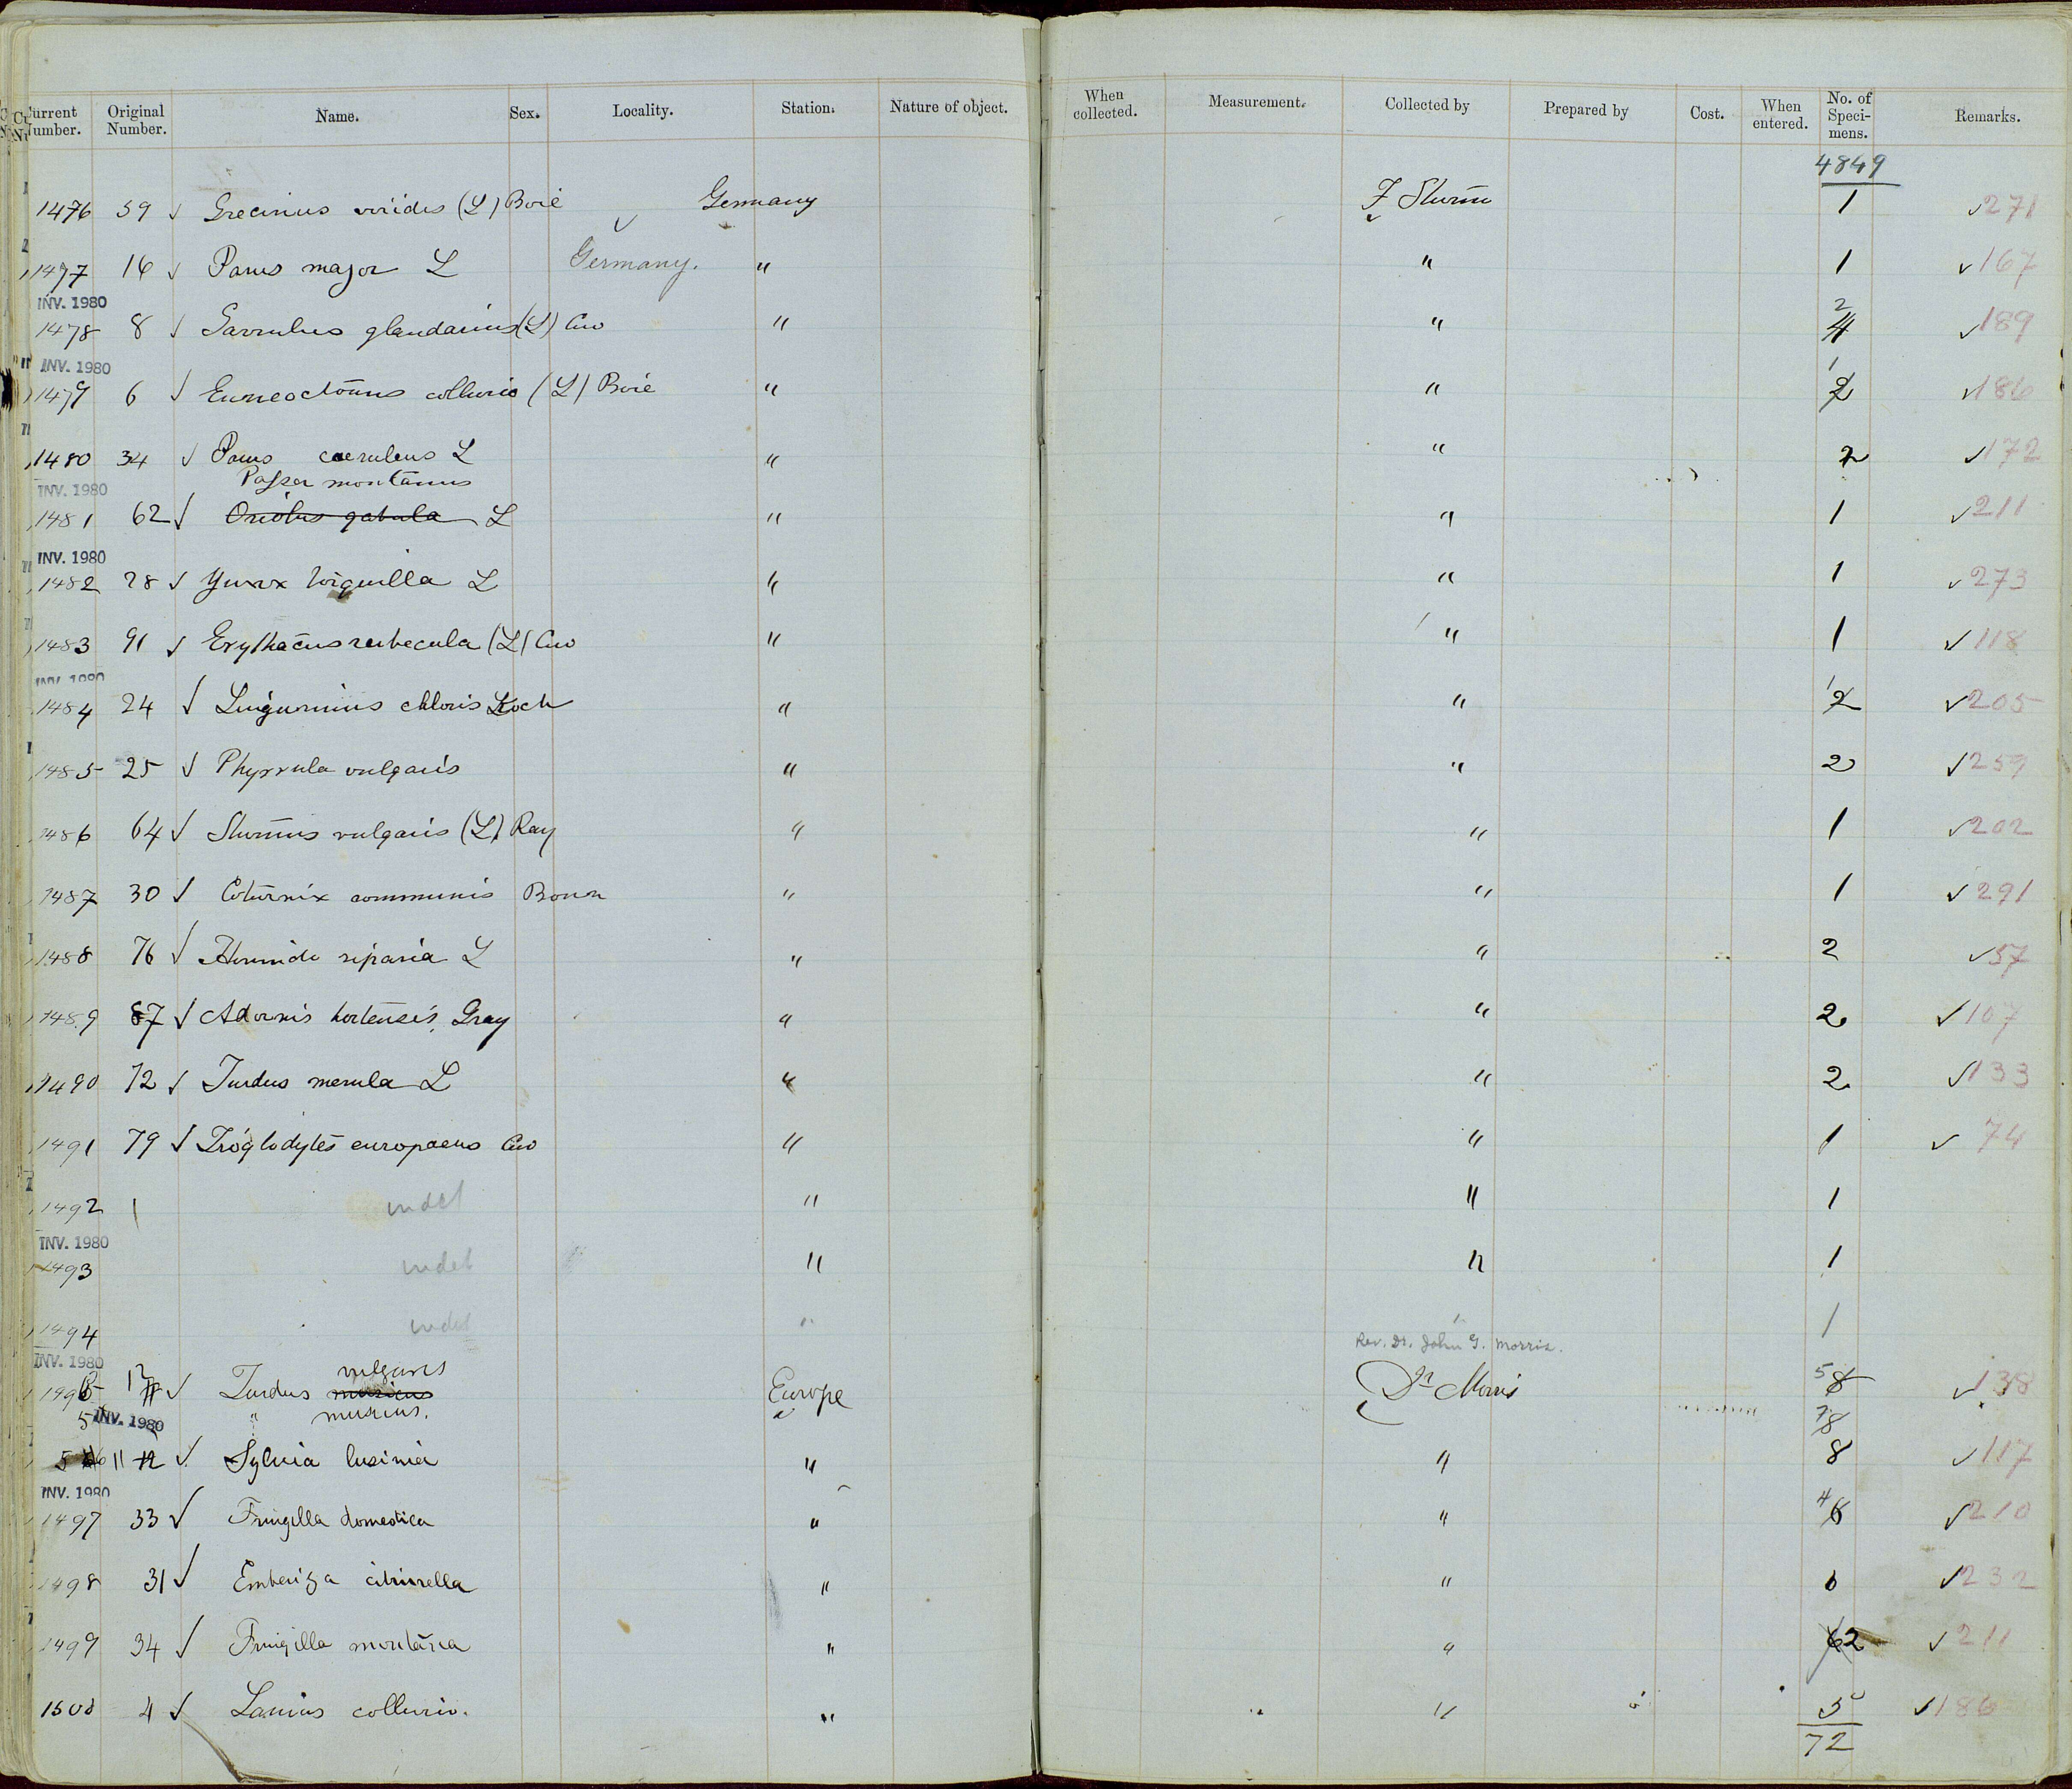 Current Number. Original Number. Name. Sex. Locality. Station. Nature of object. When collected. Measurement. Collected by Prepared by Cost. When entered. No. of Speci-mens. Remarks.
4849
1476 59 ✓ Grecinus viridis (L) Boie Germany F Sturm 1 ✓271
1477 16 ✓ Parus major L Germany. " " 1 ✓167
INV. 1980
1478 8 ✓ Garrulus glandarius (L) Cuv " " 2 4 ✓189
INV. 1980
1479 6 ✓ Enneoctonus collurio (L) Boie " " 1 2 ✓186
1480 34 ✓ Parus caeruleus L " " 2 ✓172
Passer montanus
INV. 1980
1481 62 ✓ Oriolus galbula L " " 1 ✓211
INV. 1980
1482 28 ✓ Yunx torquilla L " " 1 ✓273
1483 91 ✓ Erythacus rubecula (L) Cuv " " 1 ✓118
INV. 1980
1484 24 ✓ Ligurinus chloris Koch " " 1 2 ✓205
1485 25 ✓ Phyrrula vulgaris " " 2 ✓259
1486 64 ✓ Sturnus vulgaris (L) Ray " " 1 ✓202
1487 30 ✓ Coturnix communis Bonn " " 1 ✓291
1488 76 ✓ Hirundo riparia L " " 2 ✓57
1489 87 ✓ Adornis hortensis, Gray " " 2 ✓107
1490 72 ✓ Turdus merula L " " 2 ✓133
1491 79 ✓ Troglodytes europaeus Cuv " " 1 ✓ 74
1492 1 indet " " 1
INV. 1980
1493 indet " " 1
1494 indet " " 1
Rev. Dr. John G. Morris.
INV. 1980
vulgaris
1495 12 ✓ Turdus musicus Europe Dr Morris 5 8 ✓138
5 INV. 1980 " musicus. 7 8
5 6 11 12 ✓ Sylvia lusinia " " 8 ✓117
INV. 1980
1497 33 ✓ Fringilla domestica " " 4 6 ✓210
1498 31 ✓ Emberiza citrinella " " 6 ✓232
1499 34 ✓ Fringilla montana " " 6 2 ✓211
1500 4 ✓ Lanius collurio. " " 5 ✓186
72